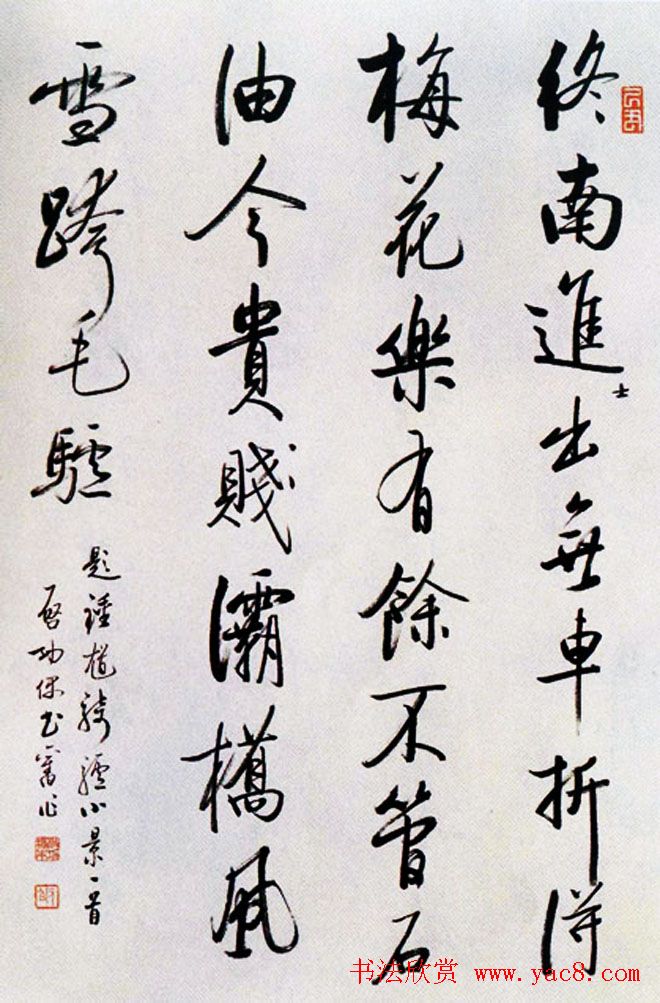 終南進士出無車折得
梅花樂有餘不管石
由今貴賤灞橋風
雪跨毛驢
題鍾馗騎驢小景一首
啓功保書舊作
书法欣赏 www.yac8.com